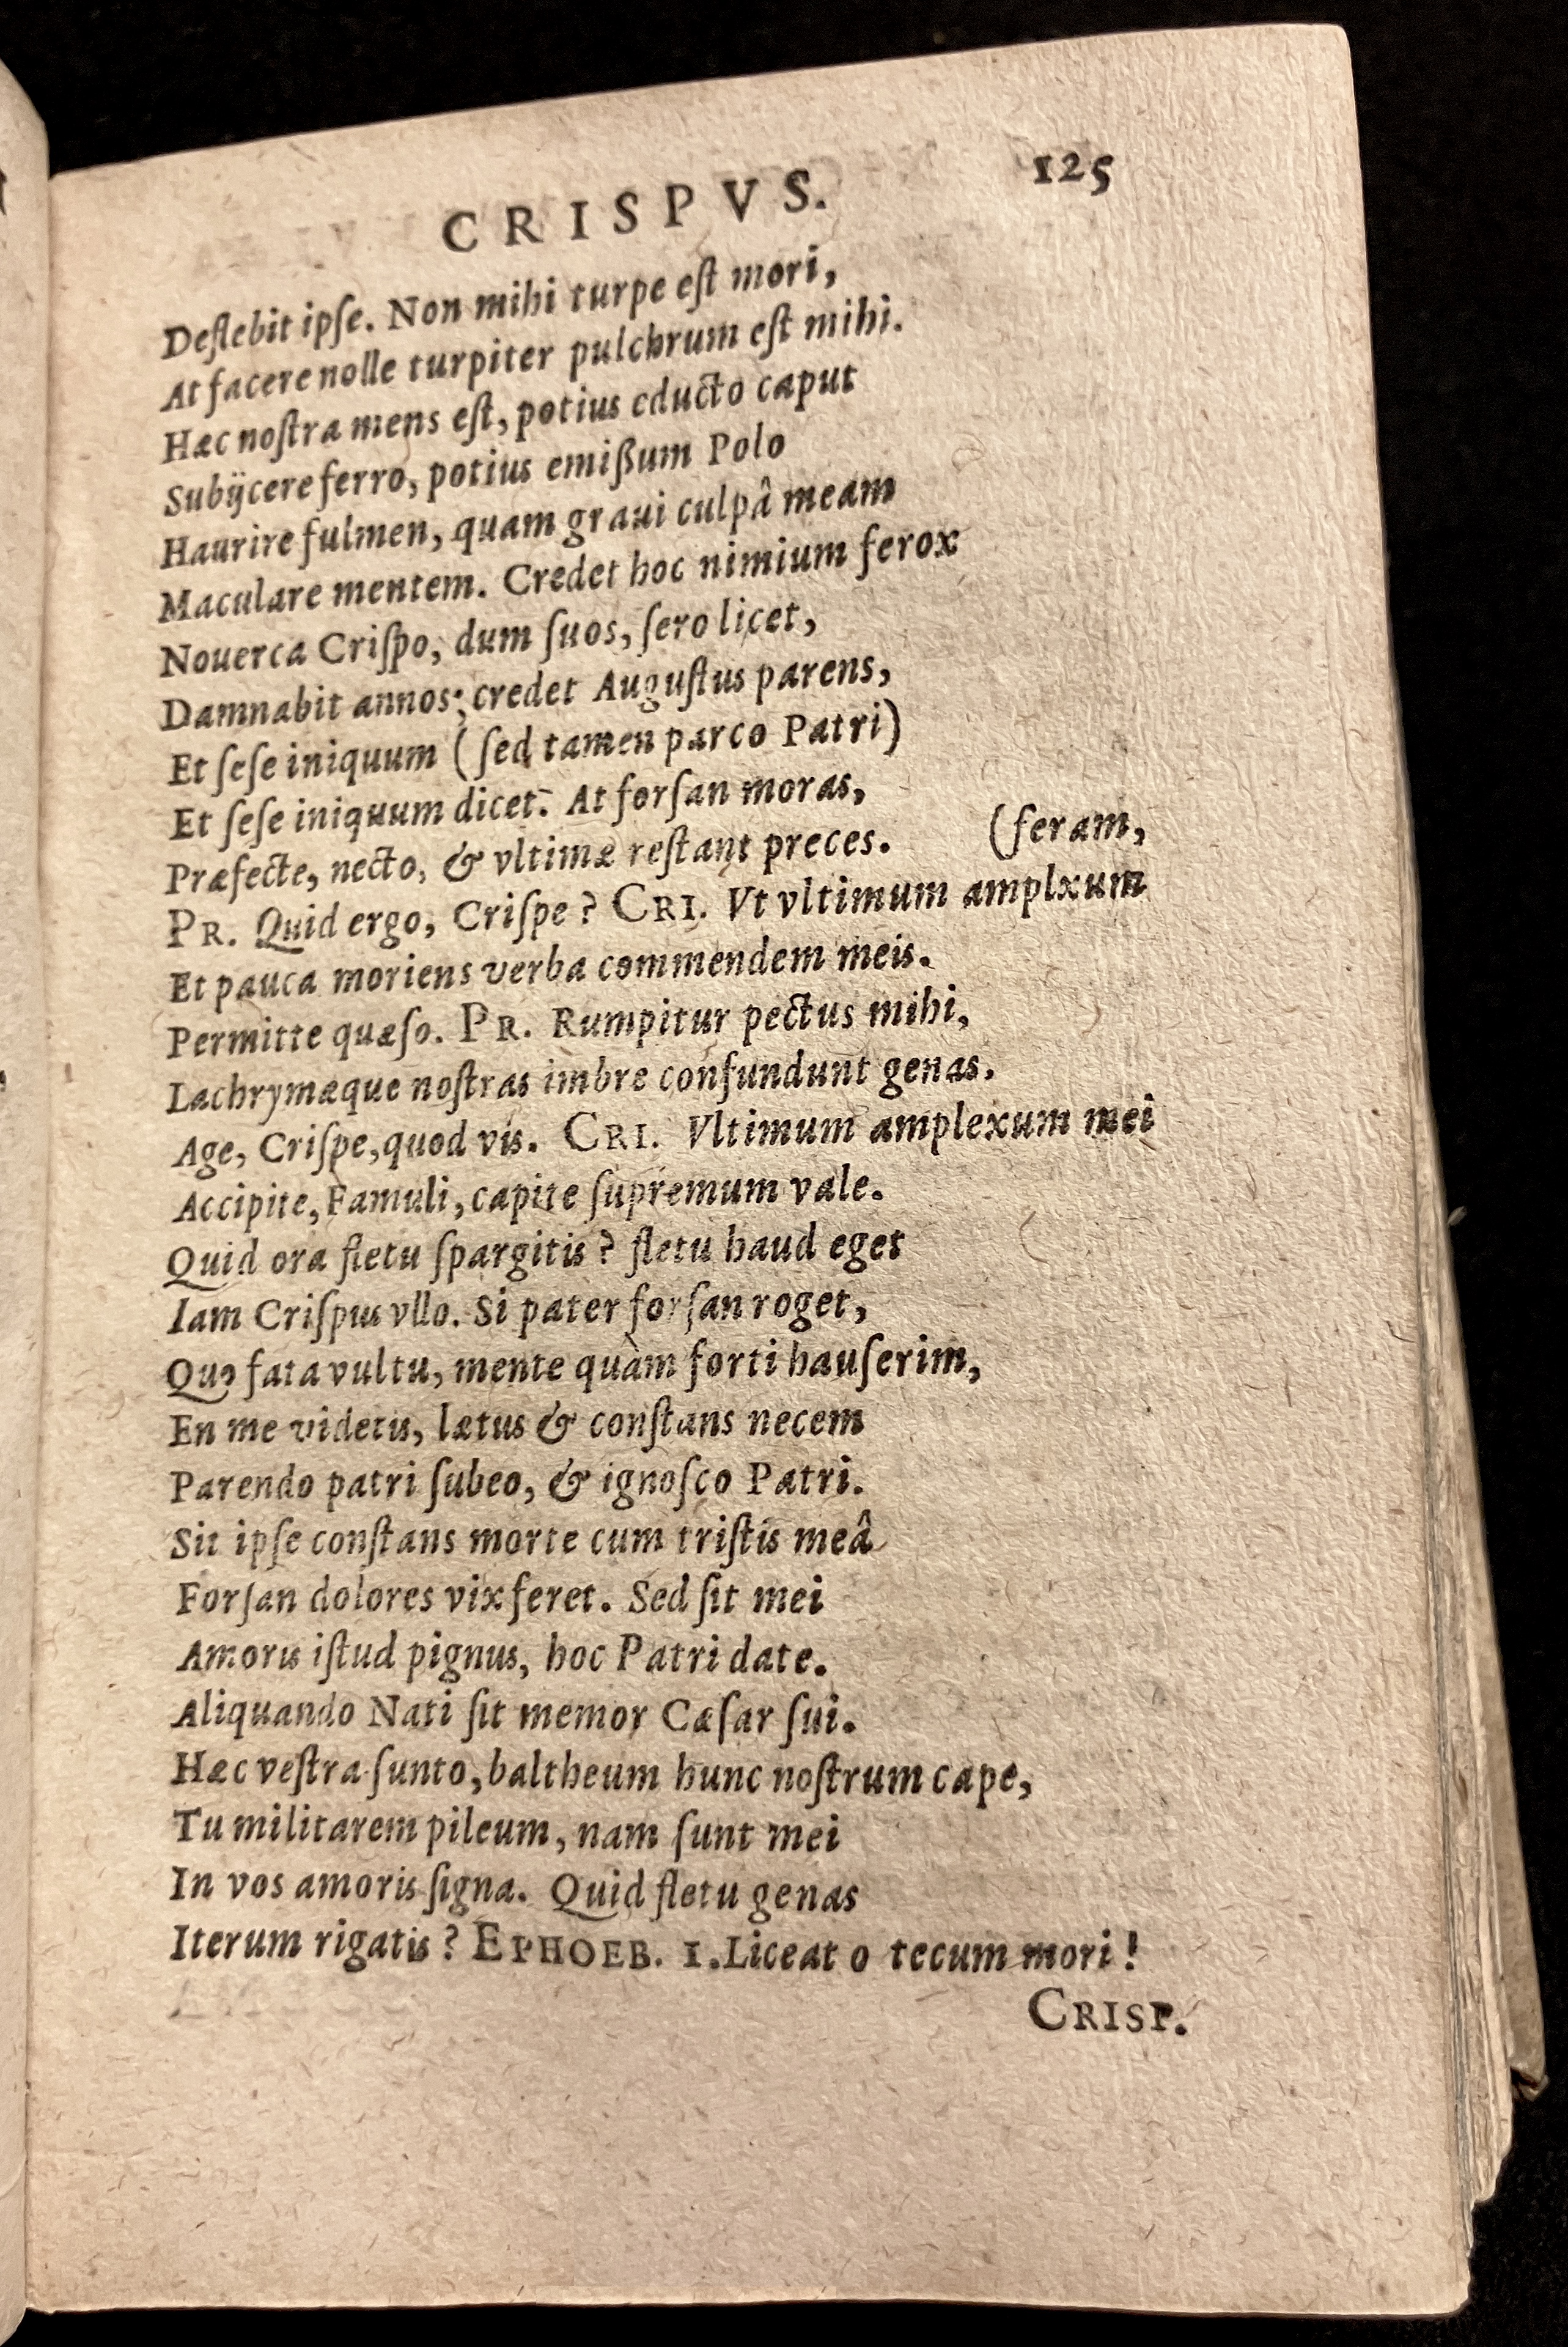 CRISPVS. 125
Deflebit ipſe. Non mihi turpe eſt mori,
At facere nolle turpiter pulchrum eſt mihi.
Hæc noſtra mens eſt, potius educto caput
Subijcere ferro, potius emißum Polo
Haurire fulmen, quam graui culpâ meam
Maculare mentem. Credet hoc nimium ferox
Nouerca Criſpo, dum ſuos, ſero licet,
Damnabit annos; credet Auguſtus parens,
Et ſeſe iniquum (ſed tamen parco Patri)
Et ſeſe iniquum dicet. At forſan moras,
Præfecte, necto, & vltimæ reſtant preces. (feram,
PR. Quid ergo, Criſpe? CRI. Vt vltimum amplxum
Et pauca moriens verba commendem meis.
Permitte quæſo. PR. Rumpitur pectus mihi,
Lachrymæque noſtras imbre confundunt genas.
Age, Criſpe, quod vis. CRI. Vltimum amplexum mei
Accipite, Famuli, capite ſupremum vale.
Quid ora fletu ſpargitis? fletu haud eget
Iam Criſpus vllo. Si pater forſan roget,
Quo fata vultu, mente quàm forti hauſerim,
En me videtis, lætus & conſtans necem
Parendo patri ſubeo, & ignoſco Patri.
Sit ipſe conſtans morte cum triſtis meâ
Forſan dolores vix feret. Sed ſit mei
Amoris iſtud pignus, hoc Patri date.
Aliquando Nati ſit memor Cæſar ſui.
Hæc veſtra ſunto, baltheum hunc noſtrum cape,
Tu militarem pileum, nam ſunt mei
In vos amoris ſigna. Quid fletu genas
Iterum rigatis? EPHOEB. 1. Liceat o tecum mori!
CRISP.